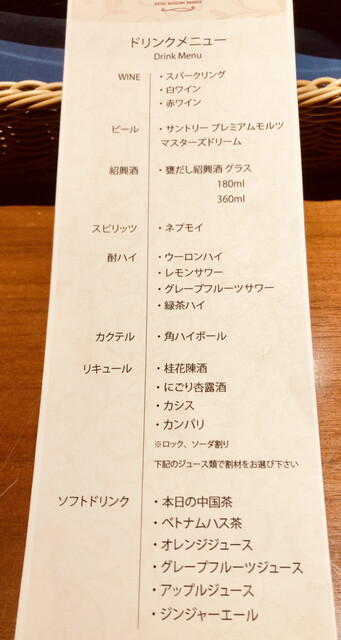 ドリンクメニュー
Drink Menu
WINE ・スパークリング
・白ワイン
・赤ワイン
ビール ・サントリー プレミアムモルツ
マスターズドリーム
紹興酒 ・甕だし紹興酒 グラス
180ml
360ml
スピリッツ ・ネプモイ
酎ハイ ・ウーロンハイ
・レモンサワー
・グレープフルーツサワー
・緑茶ハイ
カクテル ・角ハイボール
リキュール ・桂花陳酒
・にごり杏露酒
・カシス
・カンパリ
※ロック、ソーダ割り
下記のジュース類で割材をお選び下さい
ソフトドリンク ・本日の中国茶
・ベトナムハス茶
・オレンジジュース
・グレープフルーツジュース
・アップルジュース
・ジンジャーエール